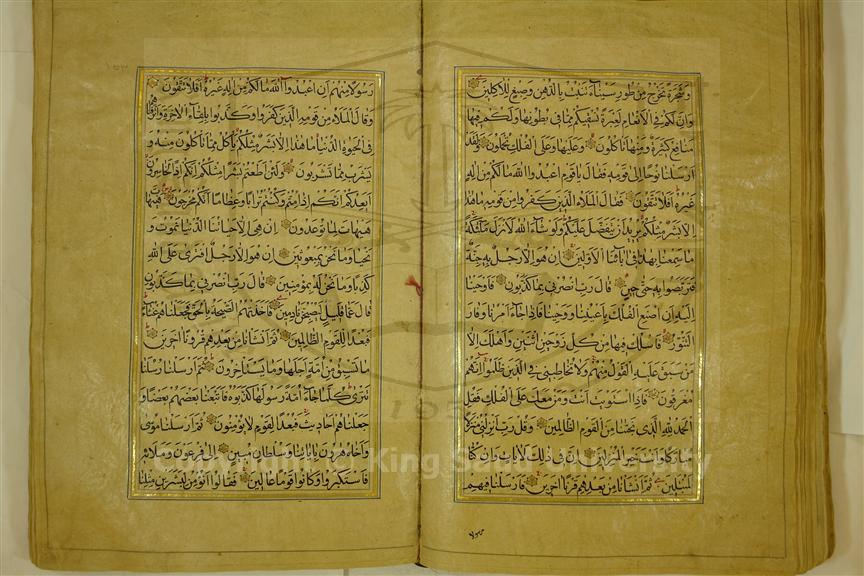 وشجرة تخرج من طور سيناء تنبت بالدهن وصبغ للآكلين
وان لكم في الانعام لعبرة نسقيكم مما في بطونها ولكم فيها
منافع كثيرة ومنها تأكلون وعليها وعلى الفلك تحملون ولقد
ارسلنا نوحا الى قومه فقال يا قوم اعبدوا الله ما لكم من اله
غيره افلا تتقون فقال الملاء الذين كفروا من قومه ما هذا
الا بشر مثلكم يريد ان يتفضل عليكم ولو شاء الله لانزل ملئكة
ما سمعنا بهذا في ابائنا الاولين ان هو الا رجل به جنة
فتربصوا به حتى حين قال رب انصرني بما كذبون فاوحينا
اليه ان اصنع الفلك باعيننا ووحينا فاذا جاء امرنا وفار
التنور فاسلك فيها من كل زوجين اثنين واهلك الا
من سبق عليه القول منهم ولا تخاطبني في الذين ظلموا انهم
مغرقون فاذا استويت انت ومن معك على الفلك فقل
الحمد لله الذي نجينا من القوم الظالمين وقل رب انزلني منزلا
مباركا وانت خير المنزلين ان في ذلك لايات وان كنا
لمبتلين ثم انشأنا من بعدهم قرنا اخرين فارسلنا فيهم
رسولا
رسولا منهم ان اعبدوا الله ما لكم من اله غيره افلا تتقون
وقال الملاء من قومه الذين كفروا وكذبوا بلقاء الاخرة واترفناهم
في الحيوة الدنيا ما هذا الا بشر مثلكم يأكل مما تأكلون منه و
يشرب مما تشربون ولئن اطعتم بشرا مثلكم انكم اذا لخاسرون
ايعدكم انكم اذا متم وكنتم ترابا وعظاما انكم مخرجون هيهات
هيهات لما توعدون ان هي الا حياتنا الدنيا نموت و
نحيا وما نحن بمبعوثين ان هو الا رجل افترى على الله
كذبا وما نحن له بمؤمنين قال رب انصرني بما كذبون
قال عما قليل ليصبحن نادمين فاخذتهم الصيحة بالحق فجعلناهم غثاء
فبعدا للقوم الظالمين ثم انشأنا من بعدهم قرونا اخرين
ما تسبق من امة اجلها وما يستاخرون ثم ارسلنا رسلنا
تترى كلما جاء امة رسولها كذبوه فاتبعنا بعضهم بعضا و
جعلناهم احاديث فبعدا لقوم لا يؤمنون ثم ارسلنا موسى
واخاه هرون باياتنا وسلطان مبين الى فرعون وملائه
فاستكبروا وكانوا قوما عالين فقالوا انؤمن لبشرين مثلنا
1957
Copyright © King Saud University